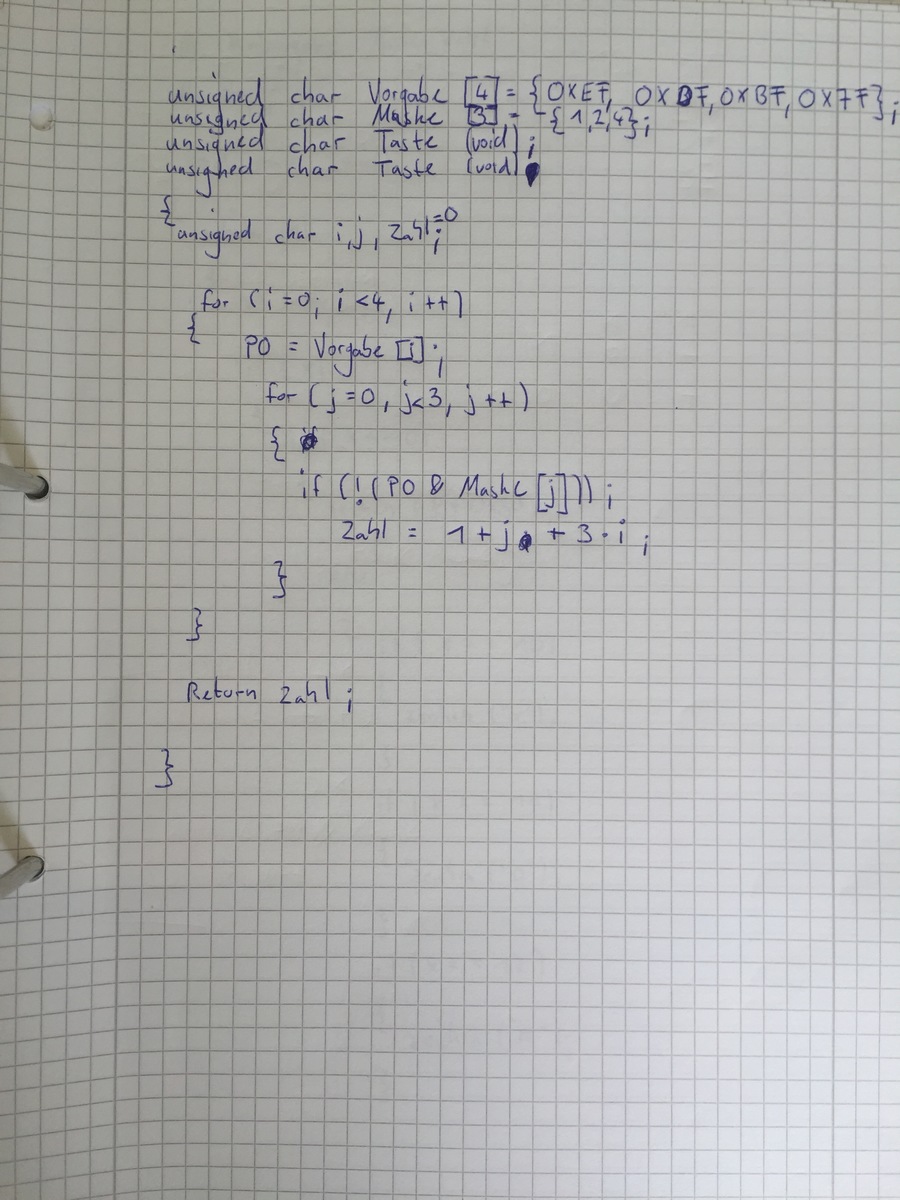 unsigned char Vorgabe [4] = {0XEF, 0XDF, 0XBF, 0X7F};
unsigned char Maske [3] = {1,2,4};
unsigned char Taste (void);
unsigned char Taste (void)
{
unsigned char i,j, Zahl=0;
for (i=0; i<4, i++)
{
P0 = Vorgabe [i];
for (j=0, j<3, j++)
{
if (!(P0 & Maske [j]));
Zahl = 1+j + 3·i;
}
}
Return Zahl;
}